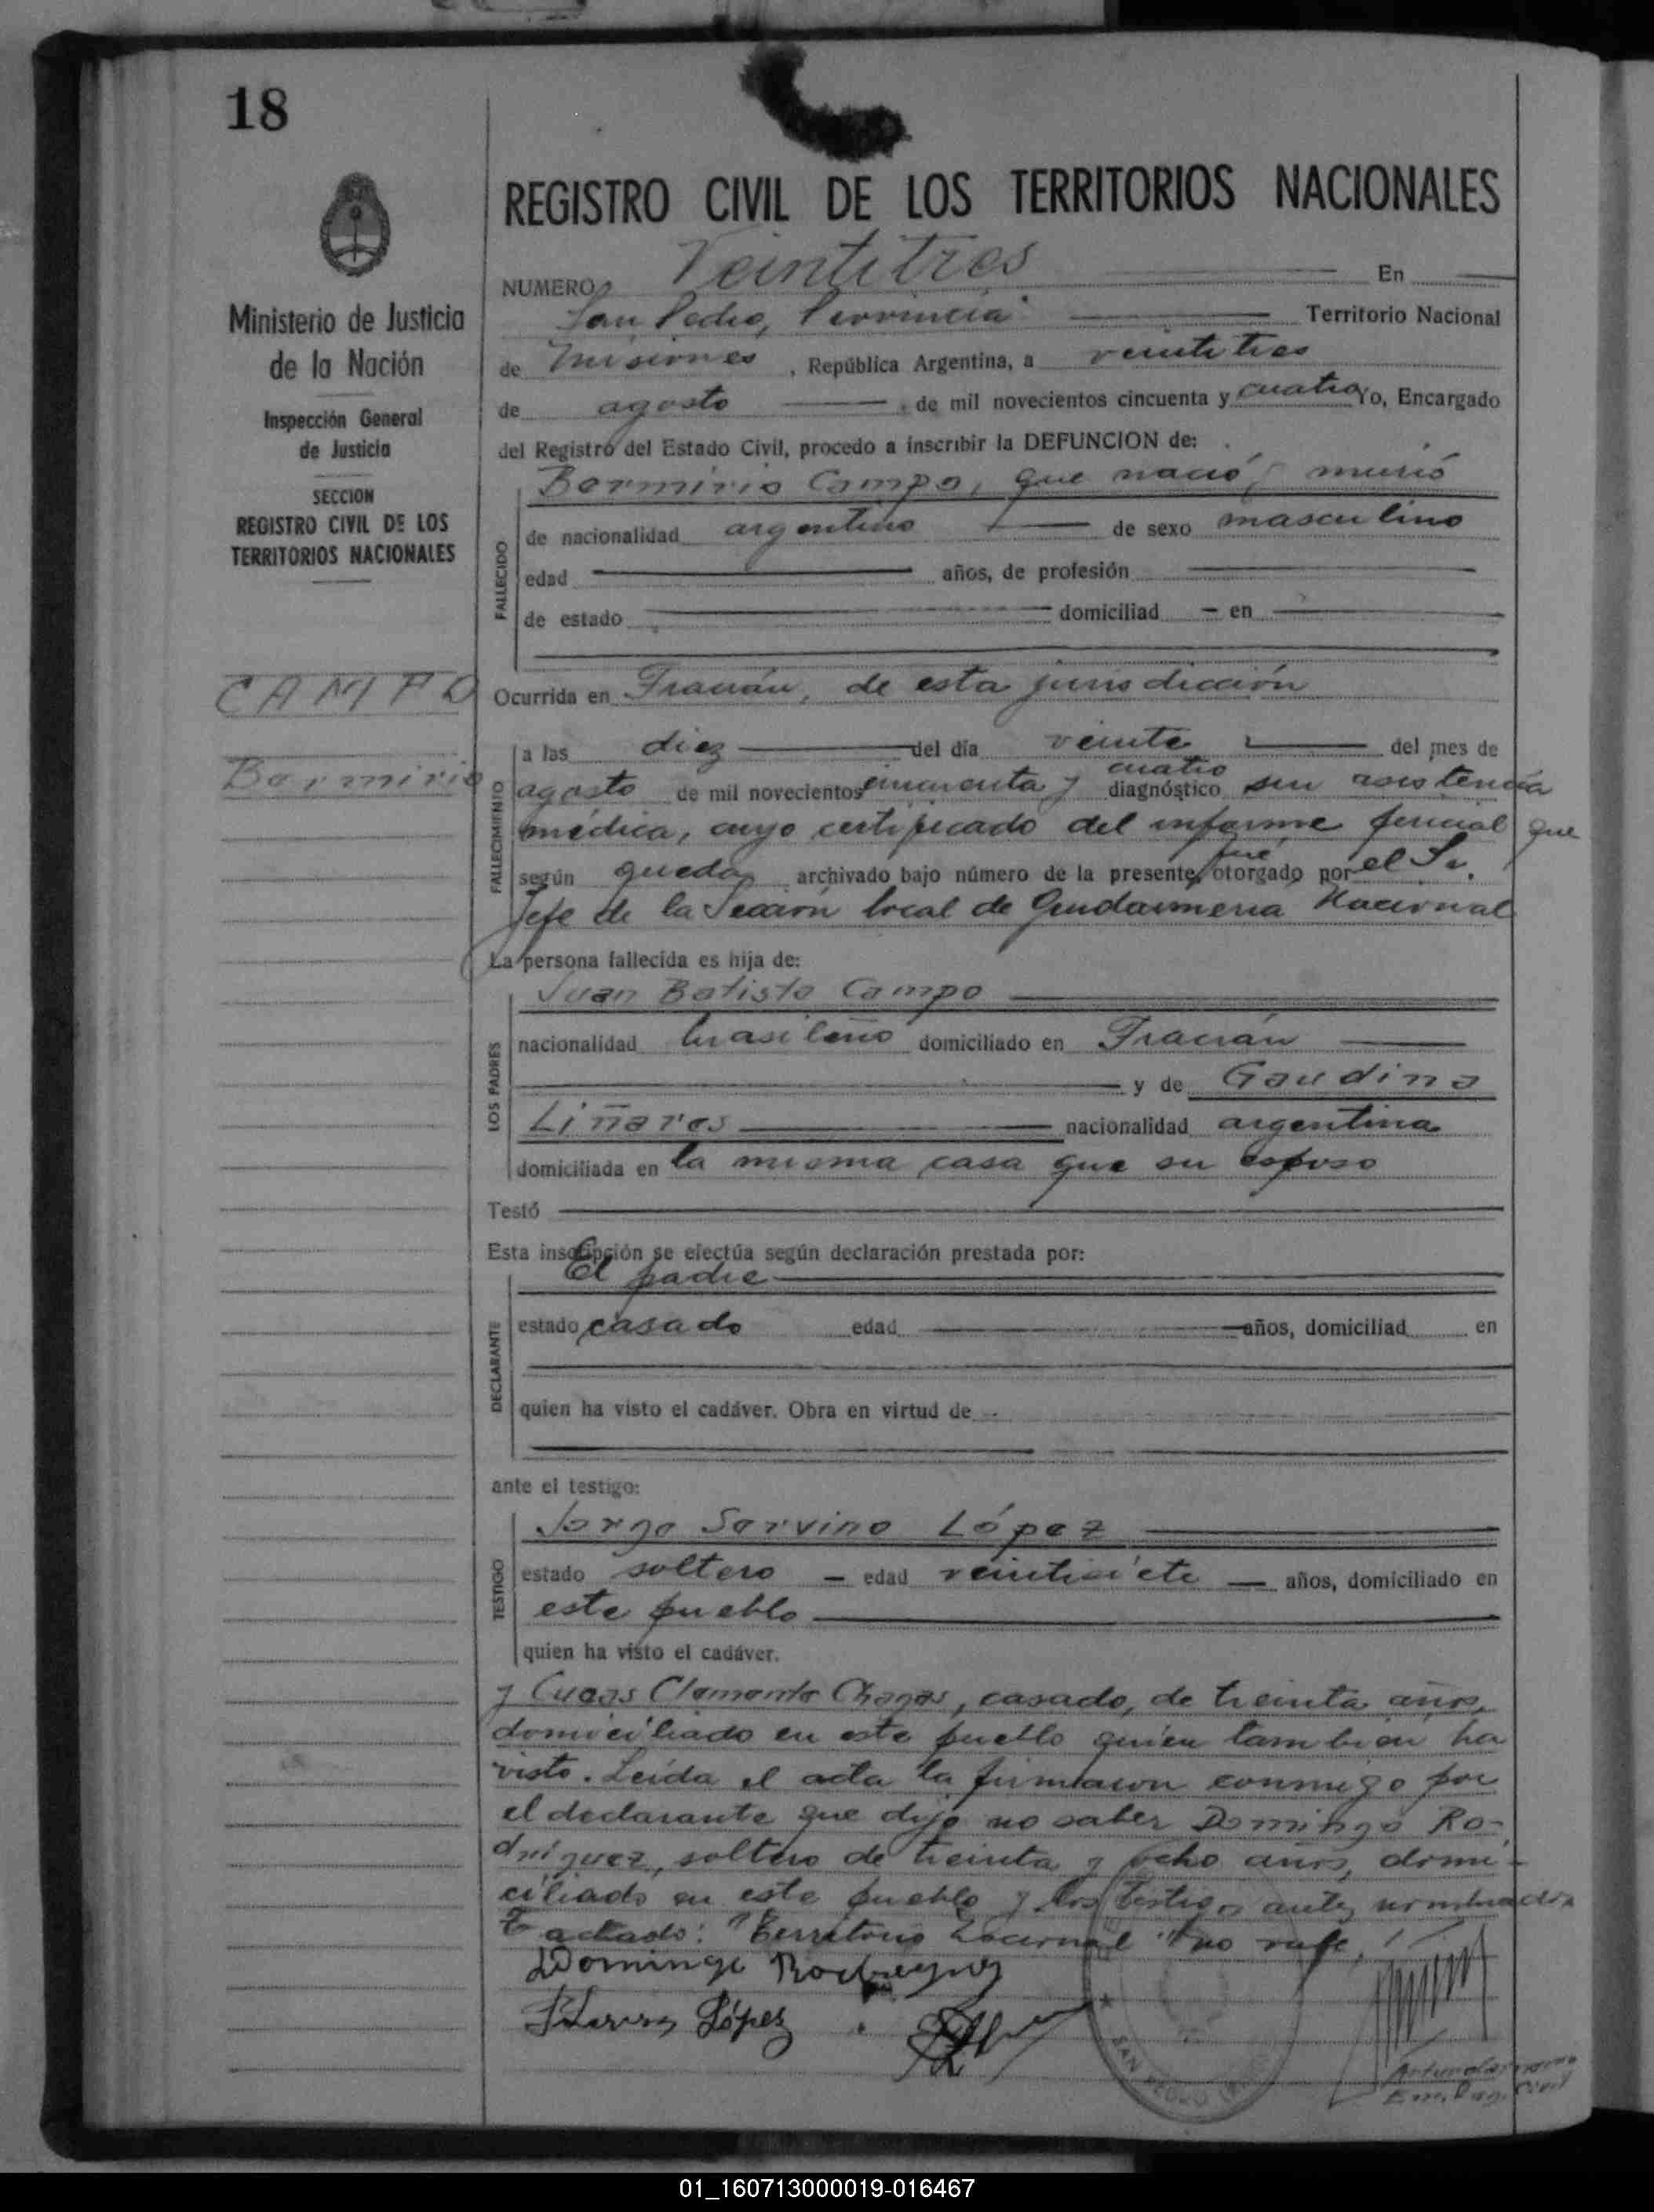 18
REGISTRO CIVIL DE LOS TERRITORIOS NACIONALES
Ministerio de Justicia
de la Nación
Inspección General
de Justicia
SECCION
REGISTRO CIVIL DE LOS
TERRITORIOS NACIONALES
CAMPO
Bermirio
NUMERO Veintitres En
San Pedro, Provincia Territorio Nacional
de Misiones, República Argentina, a veintitres
de agosto, de mil novecientos cincuenta y cuatro Yo, Encargado
del Registro del Estado Civil, procedo a inscribir la DEFUNCION de:
FALLECIDO
Bermirio Campo, que nació y murió
de nacionalidad argentino de sexo masculino
edad años, de profesión
de estado domiciliad en
Ocurrida en Fracrán, de esta jurisdicción
FALLECIMIENTO
a las diez del día veinte del mes de
agosto de mil novecientos cincuenta y cuatro diagnóstico sin asistencia
médica, cuyo certificado del informe pericial que
según queda archivado bajo número de la presente, fué otorgado por el Sr.
Jefe de la Sección local de Gendarmeria Nacional
La persona fallecida es hija de:
LOS PADRES
Juan Batista Campo
nacionalidad brasileño domiciliado en Fracrán
y de Gaudina
Liñares nacionalidad argentina
domiciliada en la misma casa que su esposo
Testó
Esta inscripción se efectúa según declaración prestada por:
DECLARANTE
El padre
estado casado edad años, domiciliad en
quien ha visto el cadáver. Obra en virtud de
ante el testigo:
TESTIGO
Jorge Servino López
estado soltero - edad veintisiete años, domiciliado en
este pueblo
quien ha visto el cadáver.
y Lucas Clemente Chagas, casado, de treinta años,
domiciliado en este pueblo quién tambien ha
visto. Leida el acta la firmaron conmigo por
el declarante que dijo no saber Domingo Ro-
driguez, soltero de treinta y ocho años, domi-
ciliado en este pueblo y los testigos antes nombrados
Testado: "Territorio Nacional" no vale.
Domingo Rodriguez
López
SAN PEDRO
Enc. Reg. Civil
01_160713000019-016467